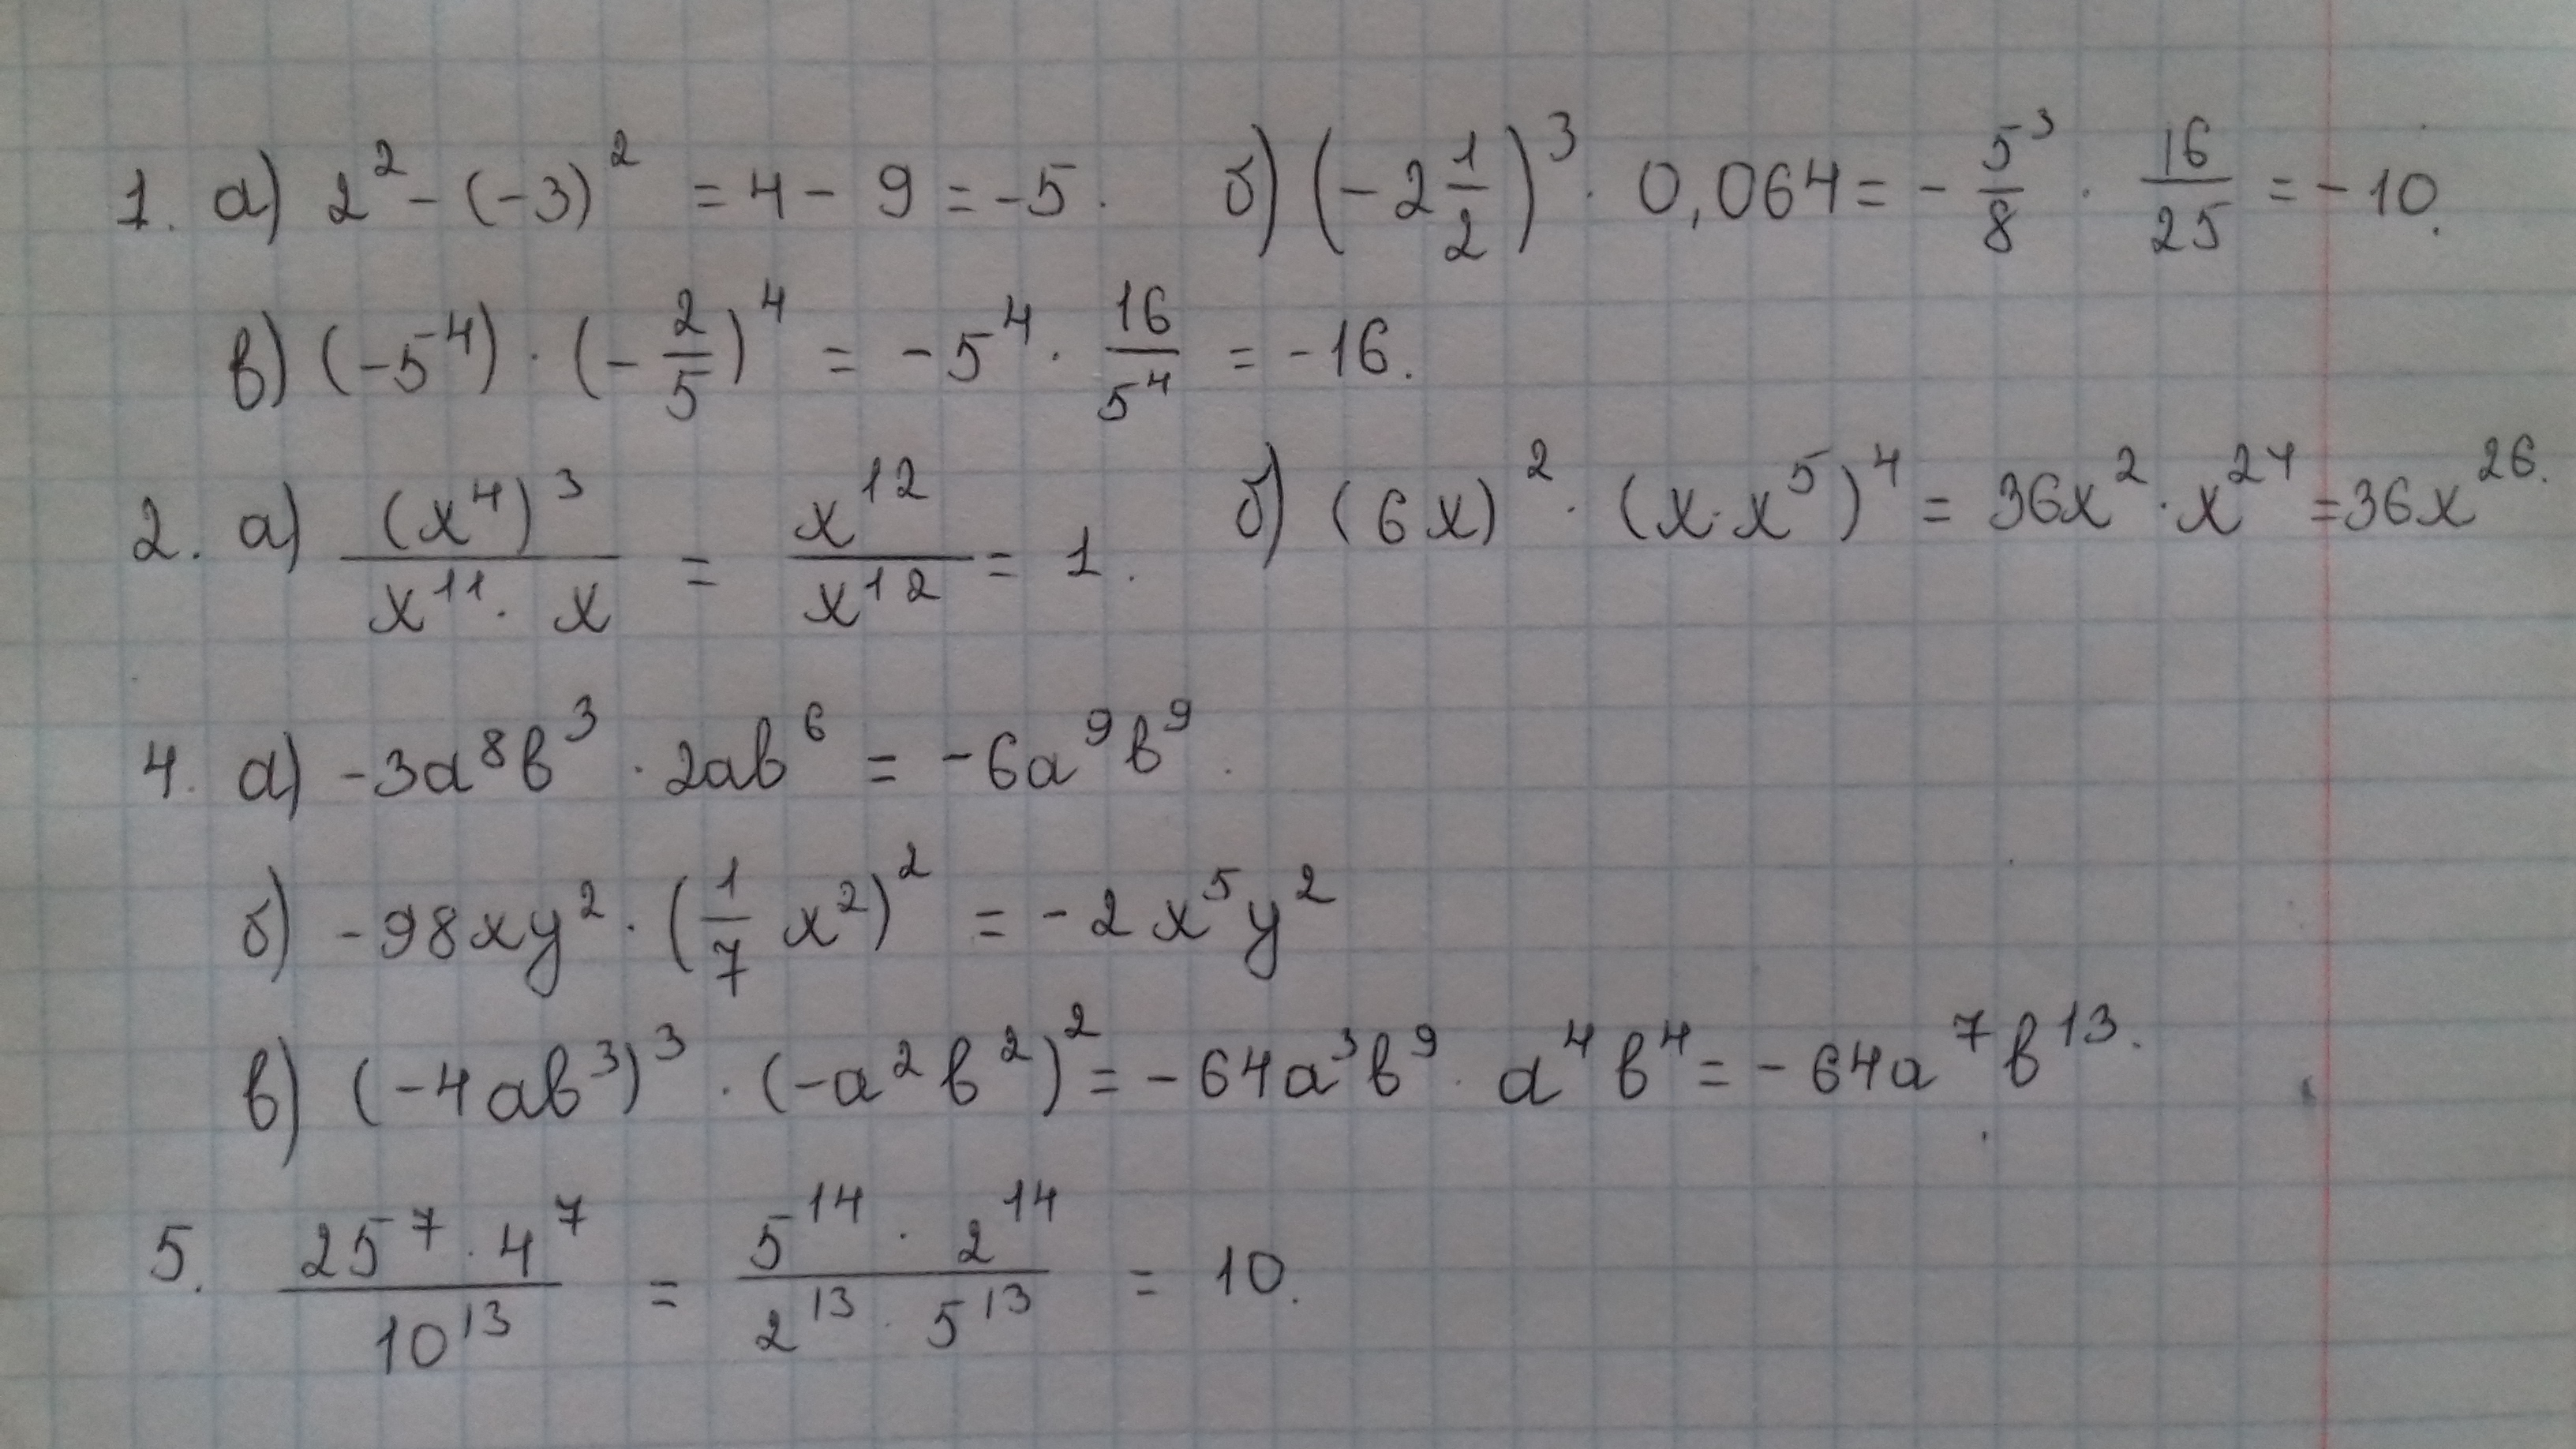 1. а) 2² - (-3)² = 4 - 9 = -5. б) (-2 1/2)³ · 0,064 = - 5³/8 · 16/25 = -10.
в) (-5⁴) · (- 2/5)⁴ = -5⁴ · 16/5⁴ = -16.
2. а) (x⁴)³/(x¹¹ · x) = x¹²/x¹² = 1. б) (6x)² · (x·x⁵)⁴ = 36x² · x²⁴ = 36x²⁶.
4. а) -3a⁸b³ · 2ab⁶ = -6a⁹b⁹.
б) -98xy² · (1/7 x²)² = -2x⁵y²
в) (-4ab³)³ · (-a²b²)² = -64a³b⁹ · a⁴b⁴ = -64a⁷b¹³.
5. (25⁷ · 4⁷)/10¹³ = (5¹⁴ · 2¹⁴)/(2¹³ · 5¹³) = 10.